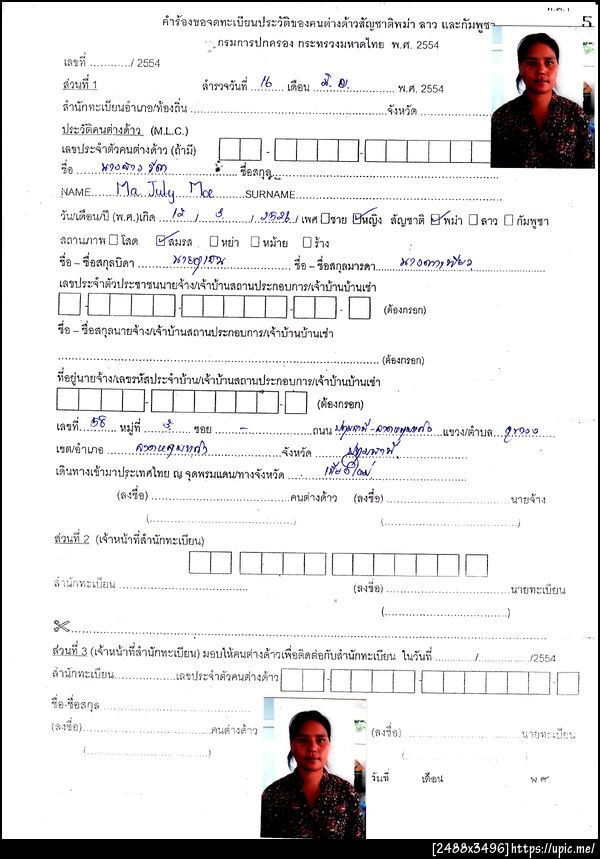 คำร้องขอจดทะเบียนประวัติของคนต่างด้าวสัญชาติพม่า ลาว และกัมพูชา
5
กรมการปกครอง กระทรวงมหาดไทย พ.ศ. 2554
เลขที่ ............/ 2554
ส่วนที่ 1 สำรวจวันที่ 16 เดือน มิ.ย. พ.ศ. 2554
สำนักทะเบียนอำเภอ/ท้องถิ่น จังหวัด
ประวัติคนต่างด้าว (M.L.C.)
เลขประจำตัวคนต่างด้าว (ถ้ามี)
ชื่อ นางสาว ชื่อสกุล
NAME July Moe SURNAME
วัน/เดือน/ปี (พ.ศ.)เกิด 12 / 3 / เพศ ชาย หญิง สัญชาติ พม่า ลาว กัมพูชา
สถานภาพ โสด สมรส หย่า หม้าย ร้าง
ชื่อ – ชื่อสกุลบิดา ชื่อ – ชื่อสกุลมารดา
เลขประจำตัวประชาชนนายจ้าง/เจ้าบ้านสถานประกอบการ/เจ้าบ้านบ้านเช่า
(ต้องกรอก)
ชื่อ – ชื่อสกุลนายจ้าง/เจ้าบ้านสถานประกอบการ/เจ้าบ้านบ้านเช่า
(ต้องกรอก)
ที่อยู่นายจ้าง/เลขรหัสประจำบ้าน/เจ้าบ้านสถานประกอบการ/เจ้าบ้านบ้านเช่า
(ต้องกรอก)
เลขที่ 58 หมู่ที่ 3 ซอย - ถนน ปทุมธานี-ลาดหลุมแก้ว แขวง/ตำบล คูขวาง
เขต/อำเภอ ลาดหลุมแก้ว จังหวัด ปทุมธานี
เดินทางเข้ามาประเทศไทย ณ จุดพรมแดน/ทางจังหวัด เชียงใหม่
(ลงชื่อ) คนต่างด้าว (ลงชื่อ) นายจ้าง
ส่วนที่ 2 (เจ้าหน้าที่สำนักทะเบียน)
สำนักทะเบียน (ลงชื่อ) นายทะเบียน
ส่วนที่ 3 (เจ้าหน้าที่สำนักทะเบียน) มอบให้คนต่างด้าวเพื่อติดต่อกับสำนักทะเบียน ในวันที่ ............/............/2554
สำนักทะเบียน เลขประจำตัวคนต่างด้าว
ชื่อ-ชื่อสกุล
(ลงชื่อ) คนต่างด้าว (ลงชื่อ) นายทะเบียน
วันที่ เดือน พ ศ
[2488x3496]https://upic.me/